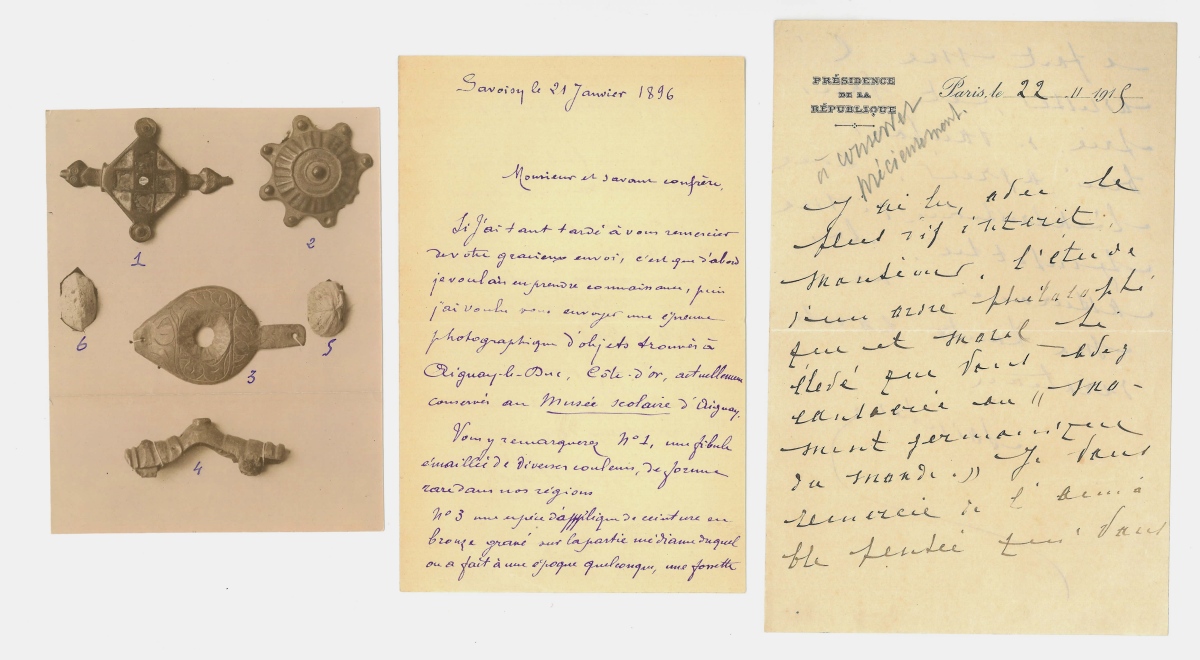 1
2
3
4
5
6
Savoisy le 21 Janvier 1896
Monsieur et savant confrère,
Si j'ai tant tardé à vous remercier
de votre gracieux envoi, c'est que d'abord
je voulais en prendre connaissance, puis
j'ai voulu vous envoyer une épreuve
photographique d'objets trouvés à
Aignay-le-Duc, Côte-d'or, actuellement
conservés au Musée scolaire d'Aignay.
Vous y remarquerez N°1, une fibule
émaillée de diverses couleurs, de forme
rare dans nos régions
N°3 une espèce d'applique de ceinture en
bronze gravé sur la partie médiane duquel
on a fait à une époque quelconque, une fossette
PRÉSIDENCE
DE LA
RÉPUBLIQUE
Paris, le 22 11 1915
à conserver
précieusement.
J'ai lu, avec le
plus vif intérêt,
monsieur, l'étude
d'un ordre philosophi
que et moral si
élevé que vous avez
consacrée au " mo-
ment germanique
du monde. " Je vous
remercie de l'aima
ble pensée qui vous